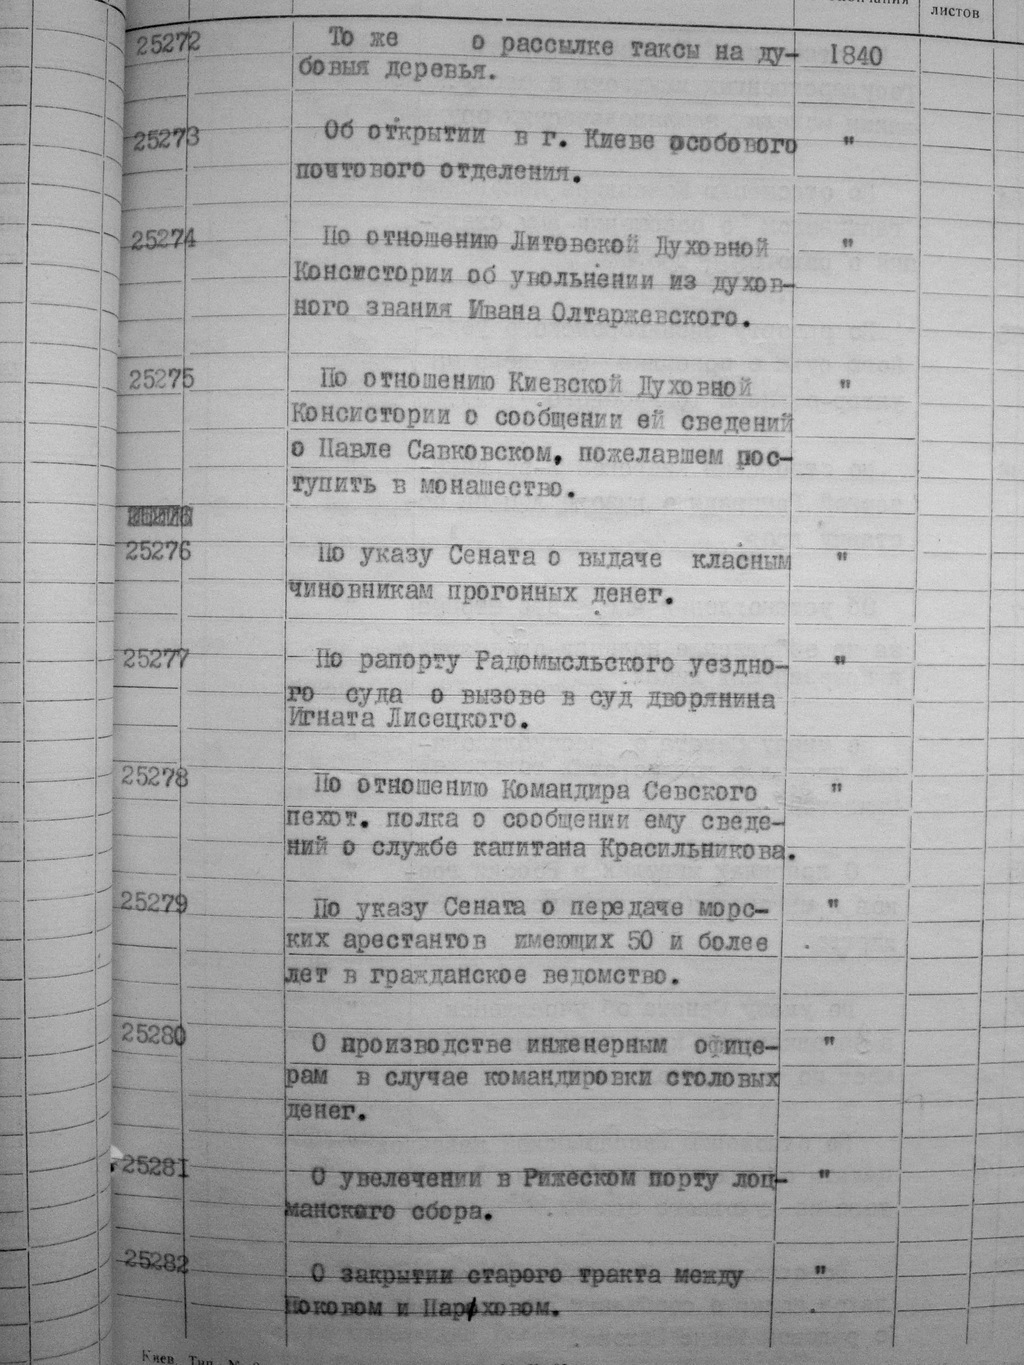 листов
25272 То же о рассылке таксы на ду- 1840
бовыя деревья.
25273 Об открытии в г. Киеве особового "
почтового отделения.
25274 По отношению Литовской Духовной "
Консистории об увольнении из духов-
ного звания Ивана Олтаржевского.
25275 По отношению Киевской Духовной "
Консистории о сообщении ей сведений
о Павле Савковском, пожелавшем пос-
тупить в монашество.
25276 По указу Сената о выдаче класным "
чиновникам прогонных денег.
25277 По рапорту Радомысльского уездно- "
го суда о вызове в суд дворянина
Игната Лисецкого.
25278 По отношению Командира Севского "
пехот. полка о сообщении ему сведе-
ний о службе капитана Красильникова.
25279 По указу Сената о передаче морс- "
ких арестантов имеющих 50 и более
лет в гражданское ведомство.
25280 О производстве инженерным офице- "
рам в случае командировки столовых
денег.
25281 О увелечении в Рижеском порту лоц- "
манского сбора.
25282 О закрытии старого тракта между "
и
Киев. Тип.